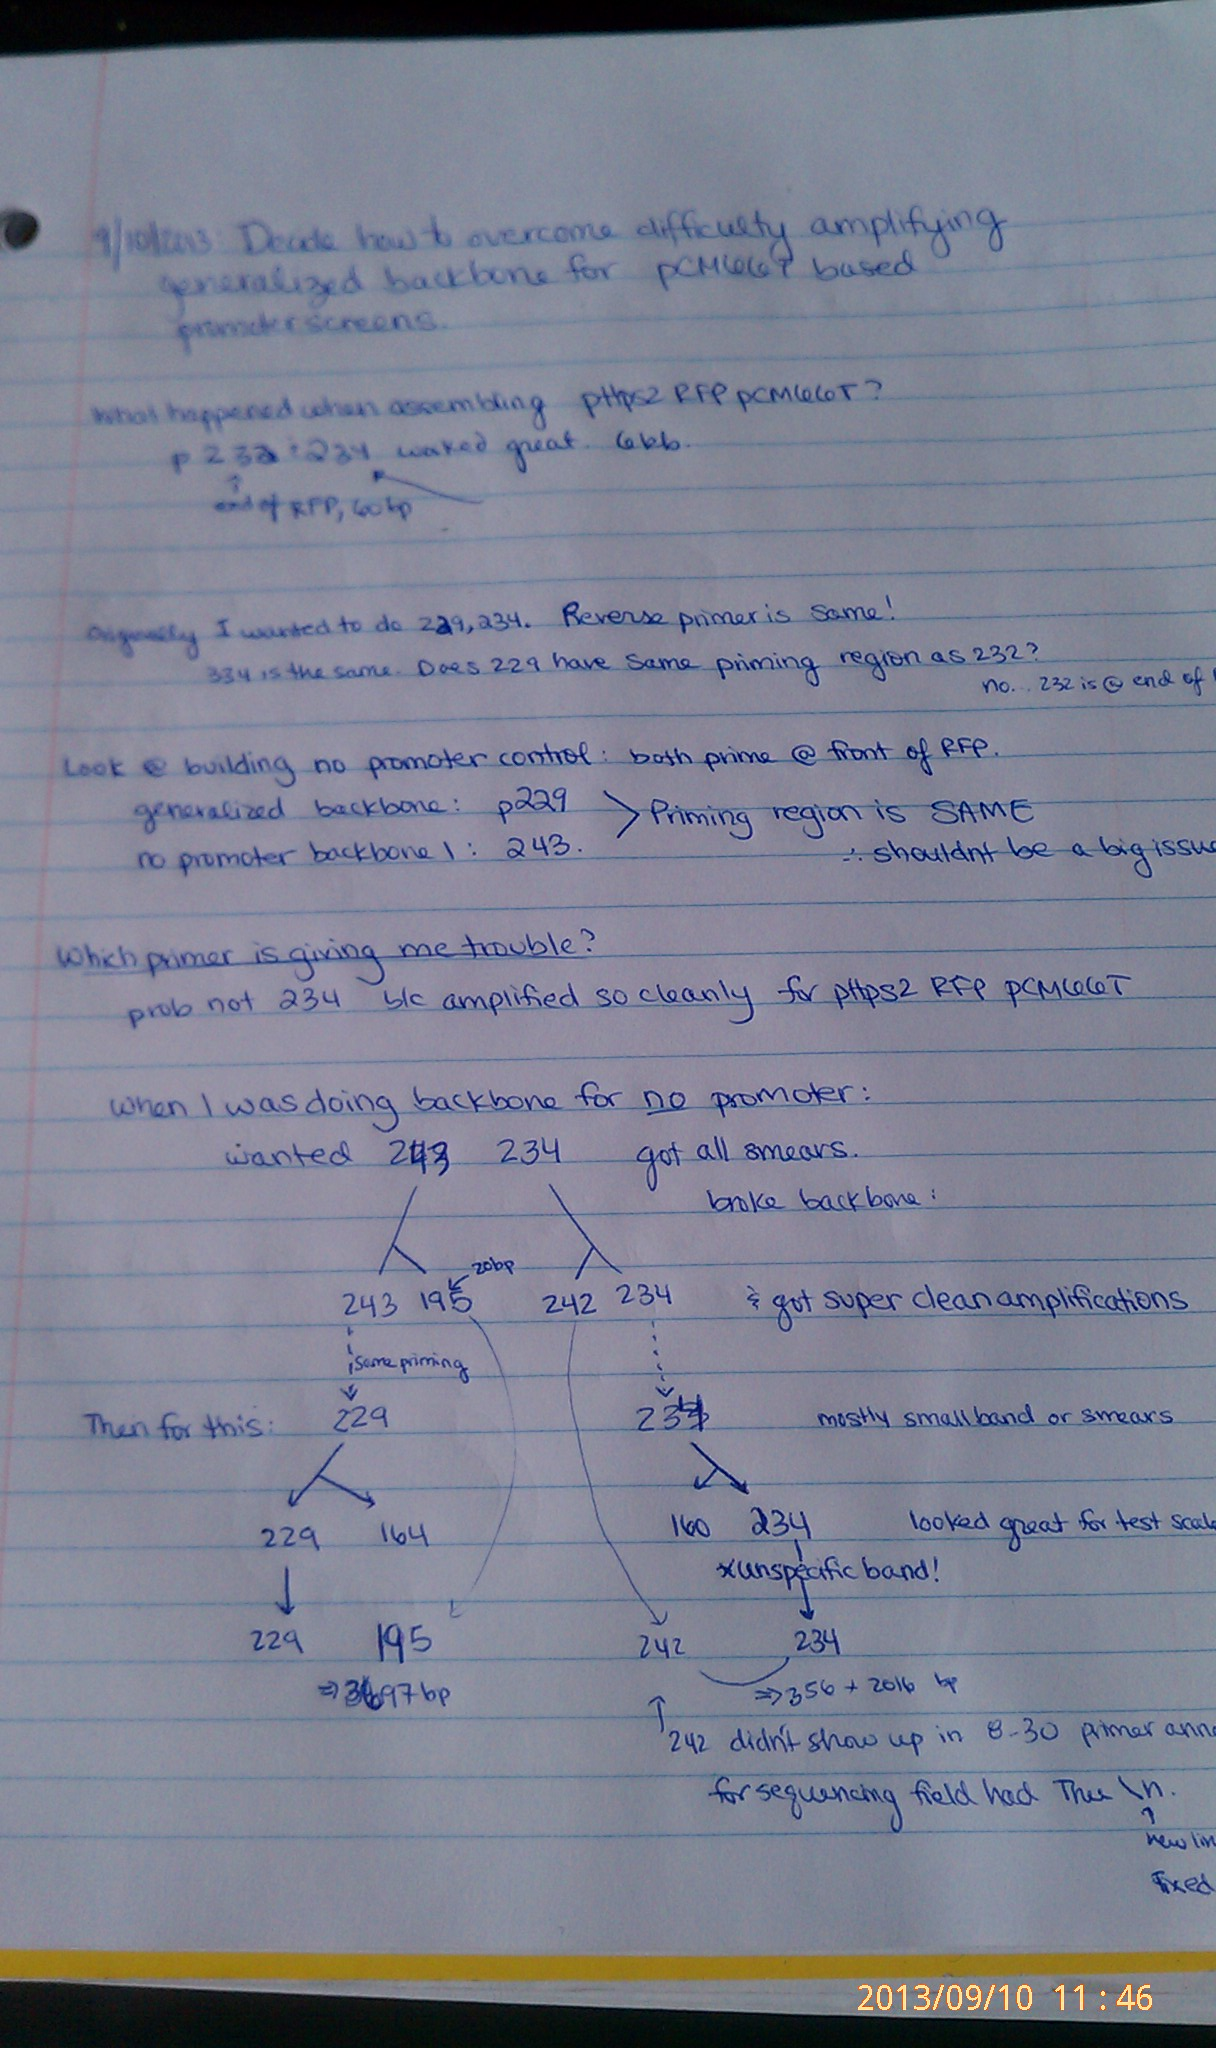 9/10/2013: Decide how to overcome difficulty amplifying
generalized backbone for pCM66T based
promoter screens.
What happened when assembling pHps2 RFP pCM66T?
p 232 : 234 worked great. 6kb.
end of RFP, 60 bp
Originally I wanted to do 229, 234. Reverse primer is same!
334 is the same. Does 229 have same priming region as 232?
no... 232 is @ end of
Look @ building no promoter control: both prime @ front of RFP.
generalized backbone: p229 > Priming region is SAME
no promoter backbone 1: 243. ∴ shouldnt be a big issue
Which primer is giving me trouble?
prob not 234 b/c amplified so cleanly for pHps2 RFP pCM66T
When I was doing backbone for no promoter:
wanted 243 234 got all smears.
broke backbone:
20bp
243 195 242 234 & got super clean amplifications
same priming
Then for this: 229 234 mostly small band or smears
229 164 160 234 looked great for test scale
*unspecific band!
229 195 242 234
⇒3697bp ⇒356 + 2016 bp
242 didn't show up in 8-30 primer anno
for sequencing field had \n.
new lin
fixed
2013/09/10 11:46